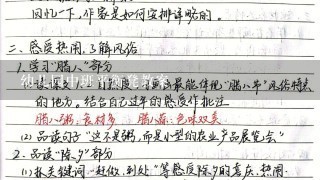 回忆一下,作家是如何安排详略的。
二、感受热闹,了解风俗
1.学习"腊八"部分
最能体现"腊八节"风俗特点
的地方。结合自己过年的感受作批注
腊八粥:食材多 腊八蒜:色味双美
(2)品读句子"这不是粥,而是小型的农业产品展览会"
2.品读"除夕"部分
(1)抓关键词"赶做、到处"等感除夕的喜庆、热闹